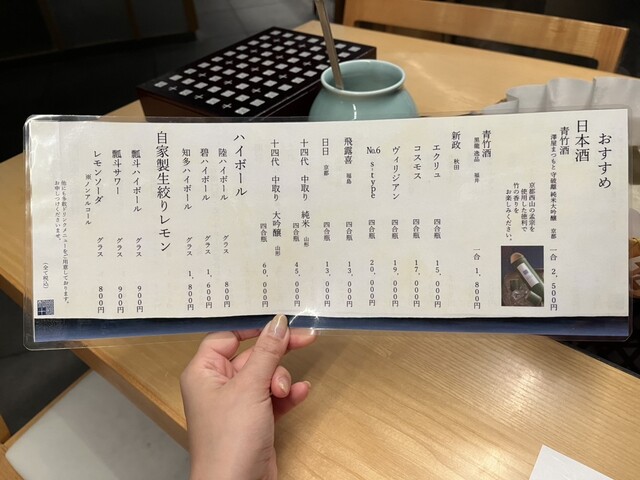 おすすめ
日本酒
青竹酒
澤屋まつもと 守破離 純米大吟醸 京都 一合 2,500円
京都西山の孟宗を
使用した徳利で
竹の香りを
お楽しみください。
青竹酒
黒龍 逸品 福井 一合 1,800円
新政 秋田
エクリュ 四合瓶 15,000円
コスモス 四合瓶 17,000円
ヴィリジアン 四合瓶 19,000円
No.6 s-type 四合瓶 20,000円
飛露喜 福島 四合瓶 13,000円
日日 京都 四合瓶 13,000円
十四代 中取り 純米 山形 四合瓶 45,000円
十四代 中取り 大吟醸 山形 四合瓶 60,000円
ハイボール
陸ハイボール グラス 800円
碧ハイボール グラス 1,600円
知多ハイボール グラス 1,800円
自家製生絞りレモン
瓢斗ハイボール グラス 900円
瓢斗サワー グラス 900円
レモンソーダ グラス 800円
※ノンアルコール
他にも多数ドリンクメニューをご用意しております。
お申しつけくださいませ。
(全て税込)